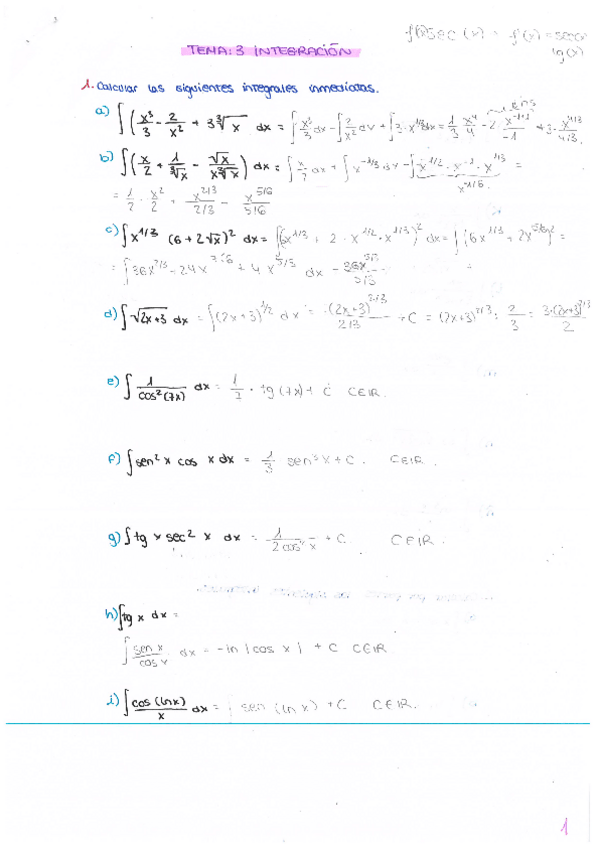 f(x) = sec(x) = f'(x) = sec(x)
tg(x)
TEMA: 3 INTEGRACIÓN
1. Calcular las siguientes integrales inmediatas.
a) ∫(x³/3 - 2/x² + 3∛x dx = ∫x³/3 dx - ∫2/x² dx + ∫3·x^1/3 dx = 1/3 x⁴/4 - 2· x^-2+1/-1 + 3· x^4/3/4/3
b) ∫(x/2 + 1/∛x - √x/x∛x) dx = ∫x/2 dx + ∫x^-1/3 dx - ∫x^1/2 · x^-1 · x^1/3 =
x^1/6
= 1/2 · x²/2 + x^2/3/2/3 - x^5/6/5/6
c) ∫x^1/3 (6 + 2√x)² dx = ∫(6x^1/3 + 2 · x^1/2 · x^1/3)² dx = ∫(6x^1/3 + 2x^5/6)² =
= ∫36x^2/3 - 24x^7/6 + 4x^5/3 dx - 36x^5/3/5/3
d) ∫√2x+3 dx = ∫(2x+3)^1/2 dx = (2x+3)^2/3/2/3 + C = (2x+3)^2/3 : 2/3 = 3·(2x+3)^2/3/2
e) ∫1/cos²(7x) dx = 1/7 · tg(7x) + C CEIR.
f) ∫sen² x cos x dx = 1/3 sen³x + C. CEIR.
g) ∫tg x sec² x dx = 1/2cos² x + C CEIR.
h) ∫tg x dx =
∫sen x/cos x dx = -ln |cos x| + C CEIR.
i) ∫cos(lnx)/x dx = sen(ln x) + C CEIR.
1